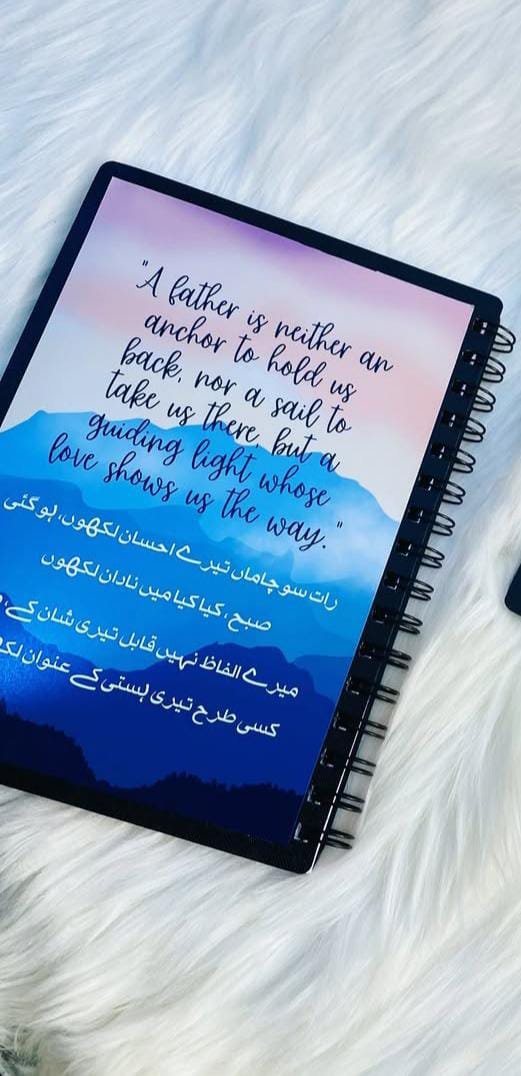 "A father is neither an
anchor to hold us
back, nor a sail to
take us there, but a
guiding light whose
love shows us the way."
رات سوچا ماں تیرے احسان لکھوں، ہو گئی
صبح، کیا کیا میں نادان لکھوں
میرے الفاظ نہیں قابل تیری شان کے،
کسی طرح تیری ہستی کے عنوان